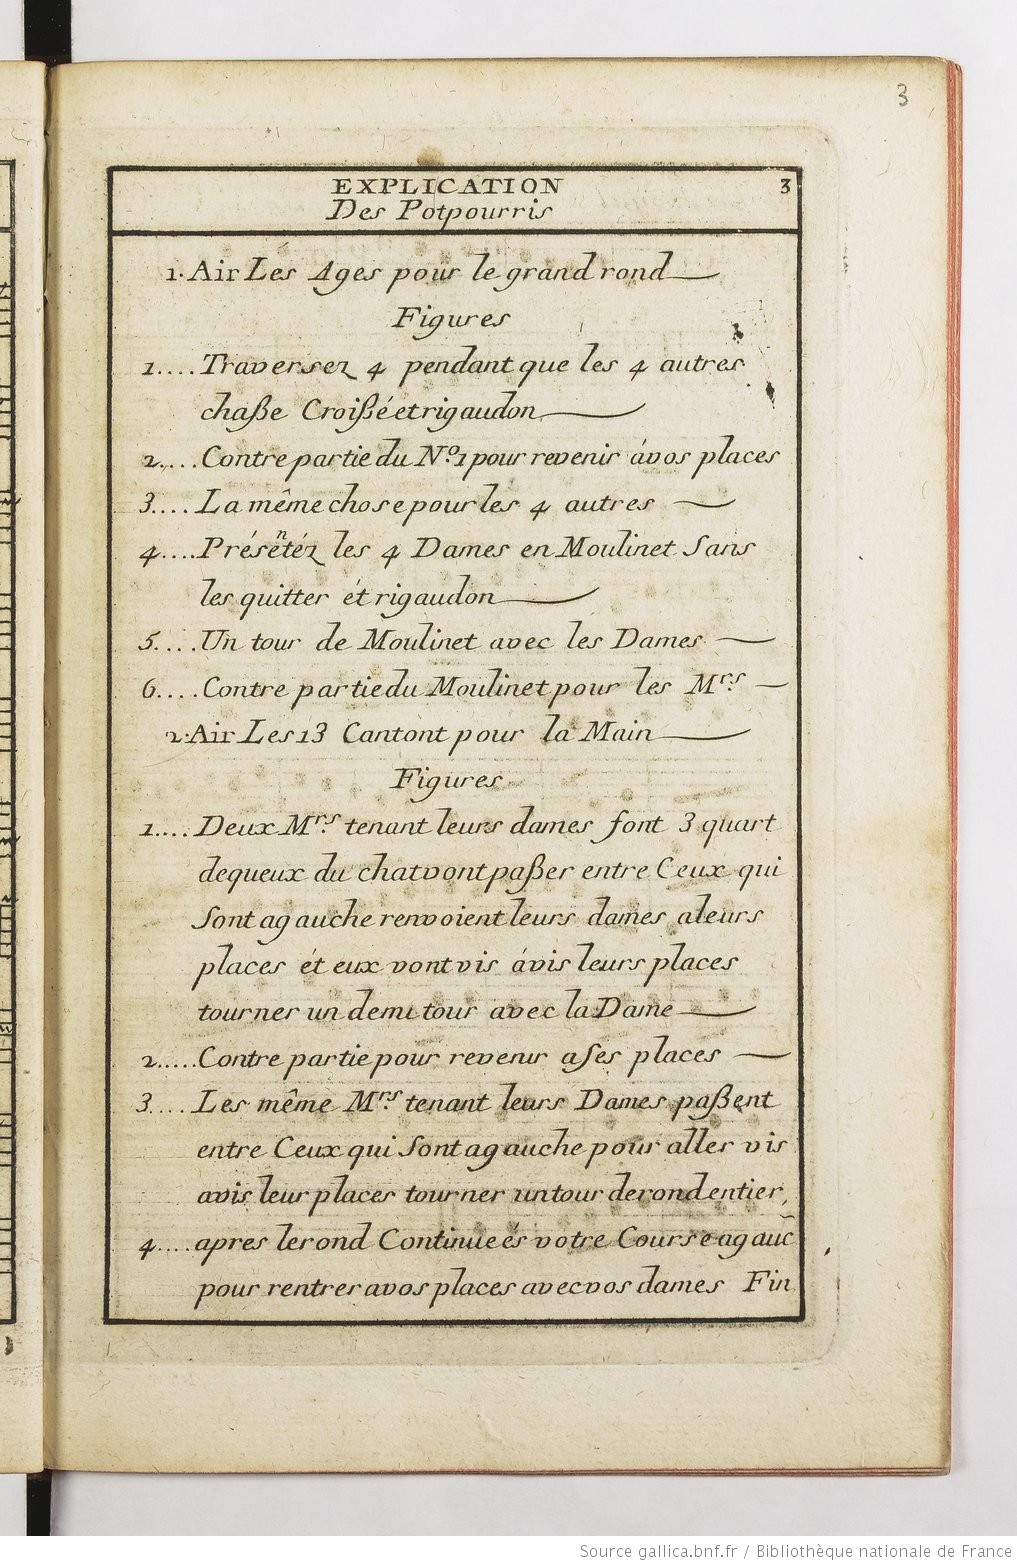 3
EXPLICATION 3
Des Potpourris
1. Air Les Ages pour le grand rond
Figures
1.... Traversez 4 pendant que les 4 autres
chaße Croißé et rigaudon
2.... Contre partie du N.o 1 pour revenir á vos places
3.... La même chose pour les 4 autres
4.... Présẽntéz les 4 Dames en Moulinet Sans
les quitter ét rigaudon
5.... Un tour de Moulinet avec les Dames
6.... Contre partie du Moulinet pour les M.rs
2. Air Les 13 Cantont pour la Main
Figures
1.... Deux M.rs tenant leurs dames font 3 quart
de queux du chat vont paßer entre Ceux qui
Sont a gauche renvoient leurs dames a leurs
places ét eux vont vis á vis leurs places
tourner un demi tour avec la Dame
2..... Contre partie pour revenir a Ses places
3.... Les même M.rs tenant leurs Dames paßent
entre Ceux qui Sont a gauche pour aller vis
avis leur places tourner un tour de rond entier,
4.... apres le rond Continueés votre Course a gauc̃
pour rentrer a vos places avec vos dames Fin
Source gallica.bnf.fr / Bibliothèque nationale de France